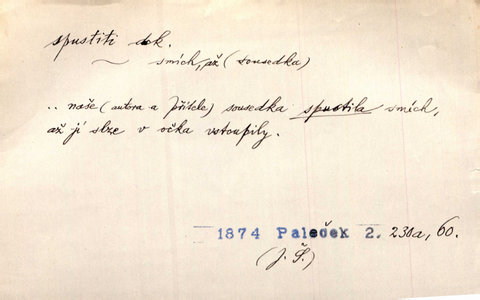 spustiti dok.
~ smích, až (sousedka)
.. naše (autora a přítele) sousedka spustila smích,
až jí slze v očka vstoupily.
— 1874 Paleček 2. 230a, 60.
(J. Š.)